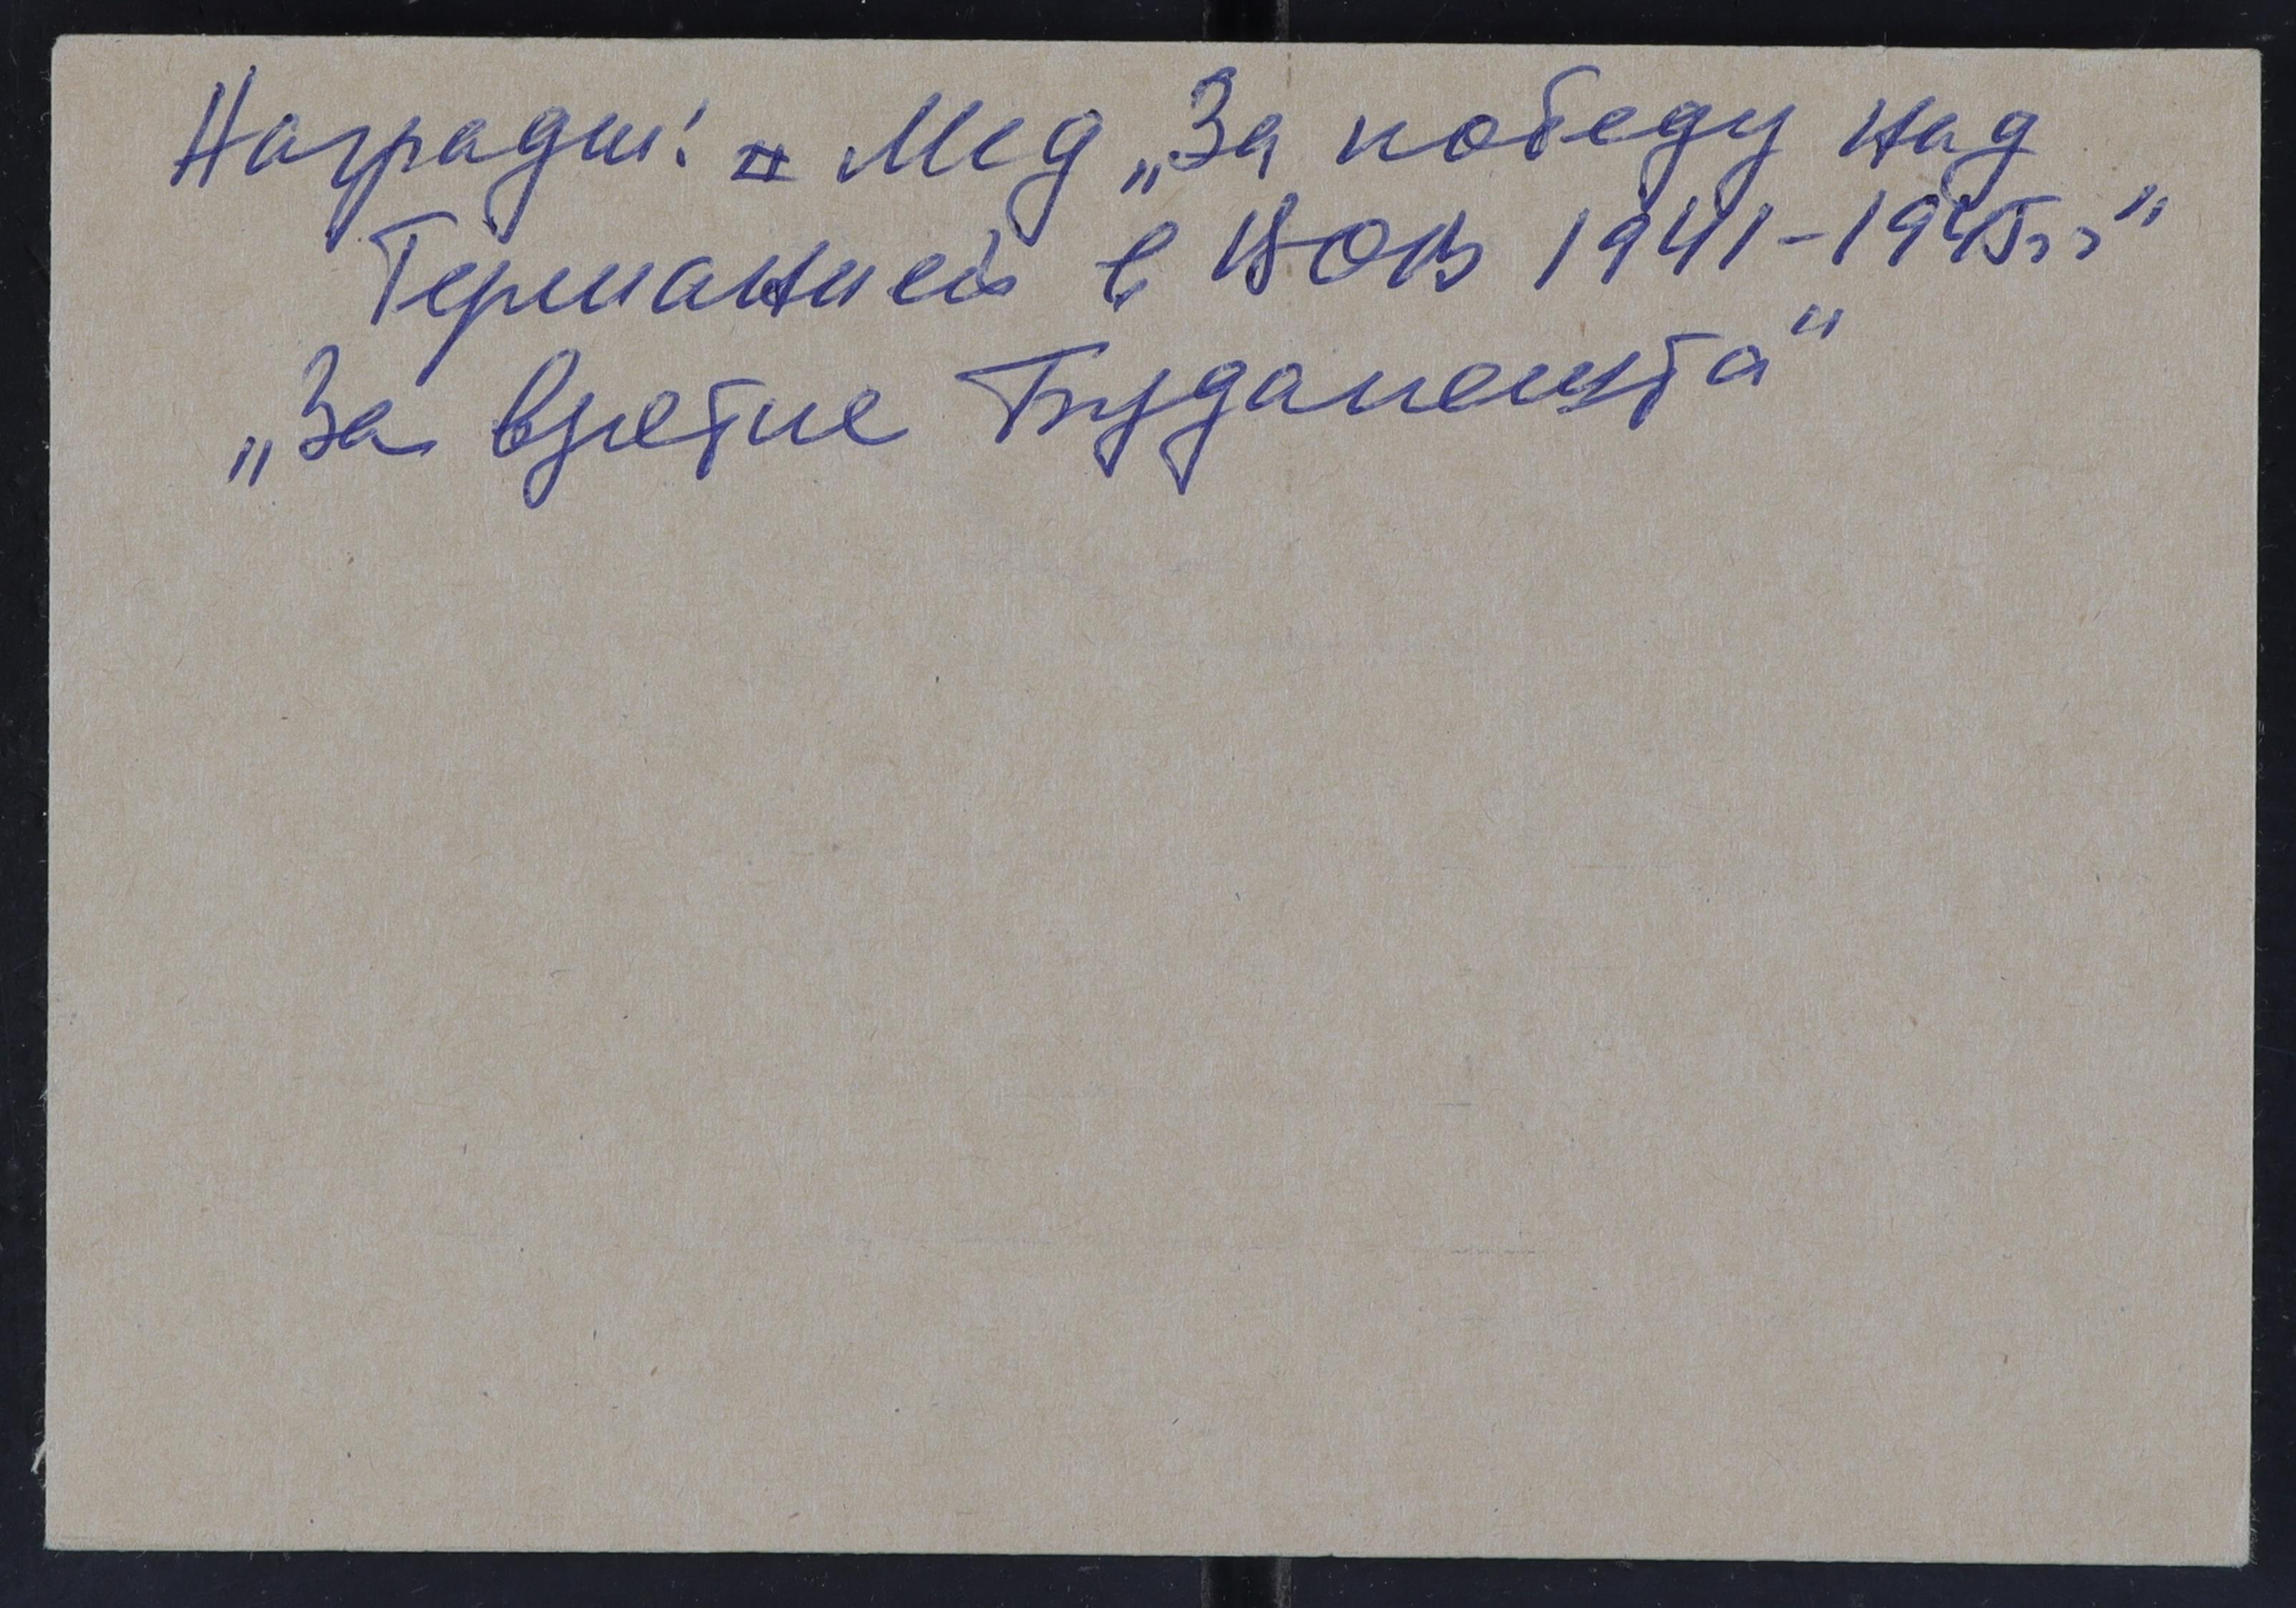 Награды: Мед „За победу над
Германией в ВОВ 1941-1945гг"
„За взятие Будапешта"